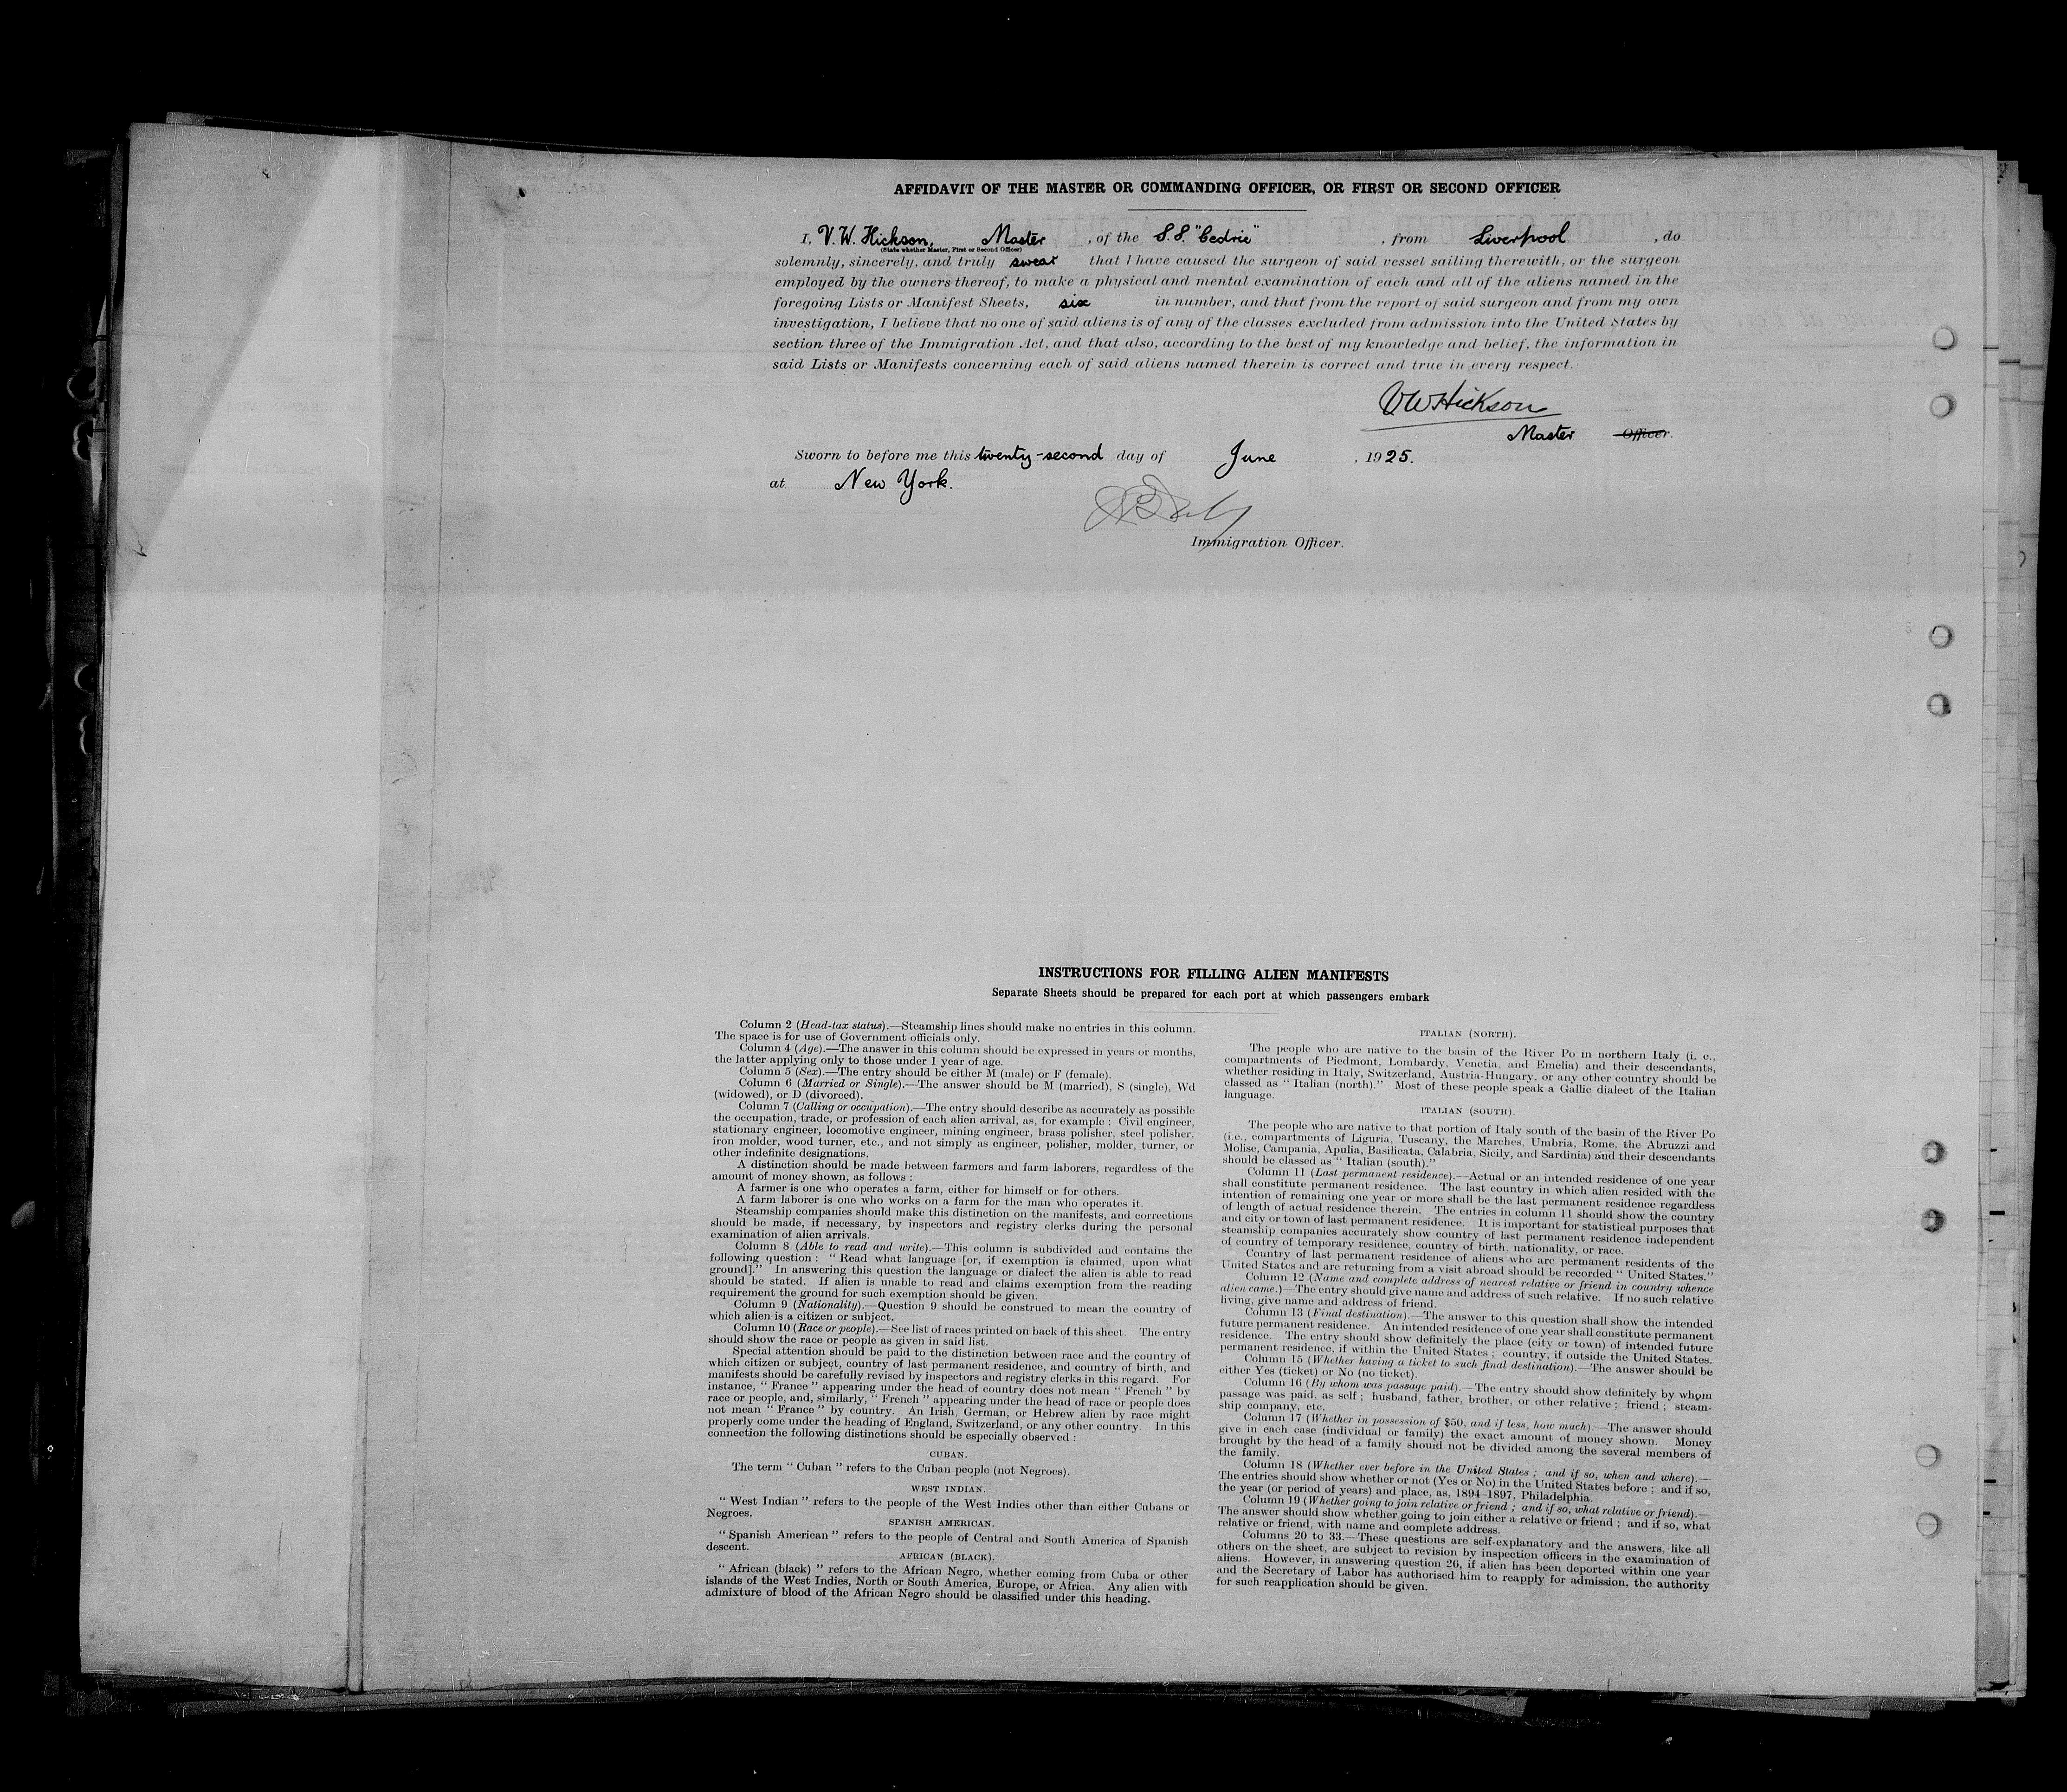 AFFIDAVIT OF THE MASTER OR COMMANDING OFFICER, OR FIRST OR SECOND OFFICER
I, V. W. Hickson, Master , of the S.S. "Cedric" , from Liverpool , do
(State whether Master, First or Second Officer)
solemnly, sincerely, and truly swear that I have caused the surgeon of said vessel sailing therewith, or the surgeon
employed by the owners thereof, to make a physical and mental examination of each and all of the aliens named in the
foregoing Lists or Manifest Sheets, six in number, and that from the report of said surgeon and from my own
investigation, I believe that no one of said aliens is of any of the classes excluded from admission into the United States by
section three of the Immigration Act, and that also, according to the best of my knowledge and belief, the information in
said Lists or Manifests concerning each of said aliens named therein is correct and true in every respect.
VWHickson
Master Officer.
Sworn to before me this twenty-second day of June , 1925.
at New York.
Immigration Officer.
INSTRUCTIONS FOR FILLING ALIEN MANIFESTS
Separate Sheets should be prepared for each port at which passengers embark
Column 2 (Head-tax status).—Steamship lines should make no entries in this column.
The space is for use of Government officials only.
Column 4 (Age).—The answer in this column should be expressed in years or months,
the latter applying only to those under 1 year of age.
Column 5 (Sex).—The entry should be either M (male) or F (female).
Column 6 (Married or Single).—The answer should be M (married), S (single), Wd
(widowed), or D (divorced).
Column 7 (Calling or occupation).—The entry should describe as accurately as possible
the occupation, trade, or profession of each alien arrival, as, for example : Civil engineer,
stationary engineer, locomotive engineer, mining engineer, brass polisher, steel polisher,
iron molder, wood turner, etc., and not simply as engineer, polisher, molder, turner, or
other indefinite designations.
A distinction should be made between farmers and farm laborers, regardless of the
amount of money shown, as follows :
A farmer is one who operates a farm, either for himself or for others.
A farm laborer is one who works on a farm for the man who operates it.
Steamship companies should make this distinction on the manifests, and corrections
should be made, if necessary, by inspectors and registry clerks during the personal
examination of alien arrivals.
Column 8 (Able to read and write).—This column is subdivided and contains the
following question : " Read what language [or, if exemption is claimed, upon what
ground]." In answering this question the language or dialect the alien is able to read
should be stated. If alien is unable to read and claims exemption from the reading
requirement the ground for such exemption should be given.
Column 9 (Nationality).—Question 9 should be construed to mean the country of
which alien is a citizen or subject.
Column 10 (Race or people).—See list of races printed on back of this sheet. The entry
should show the race or people as given in said list.
Special attention should be paid to the distinction between race and the country of
which citizen or subject, country of last permanent residence, and country of birth, and
manifests should be carefully revised by inspectors and registry clerks in this regard. For
instance, " France " appearing under the head of country does not mean " French " by
race or people, and, similarly, " French " appearing under the head of race or people does
not mean " France " by country. An Irish, German, or Hebrew alien by race might
properly come under the heading of England, Switzerland, or any other country. In this
connection the following distinctions should be especially observed :
CUBAN.
The term " Cuban " refers to the Cuban people (not Negroes).
WEST INDIAN.
" West Indian " refers to the people of the West Indies other than either Cubans or
Negroes.
SPANISH AMERICAN.
" Spanish American " refers to the people of Central and South America of Spanish
descent.
AFRICAN (BLACK).
" African (black) " refers to the African Negro, whether coming from Cuba or other
islands of the West Indies, North or South America, Europe, or Africa. Any alien with
admixture of blood of the African Negro should be classified under this heading.
ITALIAN (NORTH).
The people who are native to the basin of the River Po in northern Italy (i. e.,
compartments of Piedmont, Lombardy, Venetia, and Emelia) and their descendants,
whether residing in Italy, Switzerland, Austria-Hungary, or any other country should be
classed as " Italian (north)." Most of these people speak a Gallic dialect of the Italian
language.
ITALIAN (SOUTH).
The people who are native to that portion of Italy south of the basin of the River Po
(i.e., compartments of Liguria, Tuscany, the Marches, Umbria, Rome, the Abruzzi and
Molise, Campania, Apulia, Basilicata, Calabria, Sicily, and Sardinia) and their descendants
should be classed as " Italian (south)."
Column 11 (Last permanent residence).—Actual or an intended residence of one year
shall constitute permanent residence. The last country in which alien resided with the
intention of remaining one year or more shall be the last permanent residence regardless
of length of actual residence therein. The entries in column 11 should show the country
and city or town of last permanent residence. It is important for statistical purposes that
steamship companies accurately show country of last permanent residence independent
of country of temporary residence, country of birth, nationality, or race.
Country of last permanent residence of aliens who are permanent residents of the
United States and are returning from a visit abroad should be recorded " United States."
Column 12 (Name and complete address of nearest relative or friend in country whence
alien came.)—The entry should give name and address of such relative. If no such relative
living, give name and address of friend.
Column 13 (Final destination).—The answer to this question shall show the intended
future permanent residence. An intended residence of one year shall constitute permanent
residence. The entry should show definitely the place (city or town) of intended future
permanent residence, if within the United States ; country, if outside the United States.
Column 15 (Whether having a ticket to such final destination).—The answer should be
either Yes (ticket) or No (no ticket).
Column 16 (By whom was passage paid).—The entry should show definitely by whom
passage was paid, as self ; husband, father, brother, or other relative ; friend ; steam-
ship company, etc.
Column 17 (Whether in possession of $50, and if less, how much).—The answer should
give in each case (individual or family) the exact amount of money shown. Money
brought by the head of a family should not be divided among the several members of
the family.
Column 18 (Whether ever before in the United States ; and if so, when and where).—
The entries should show whether or not (Yes or No) in the United States before ; and if so,
the year (or period of years) and place, as, 1894–1897, Philadelphia.
Column 19 (Whether going to join relative or friend ; and if so, what relative or friend).—
The answer should show whether going to join either a relative or friend ; and if so, what
relative or friend, with name and complete address.
Columns 20 to 33.—These questions are self-explanatory and the answers, like all
others on the sheet, are subject to revision by inspection officers in the examination of
aliens. However, in answering question 26, if alien has been deported within one year
and the Secretary of Labor has authorised him to reapply for admission, the authority
for such reapplication should be given.